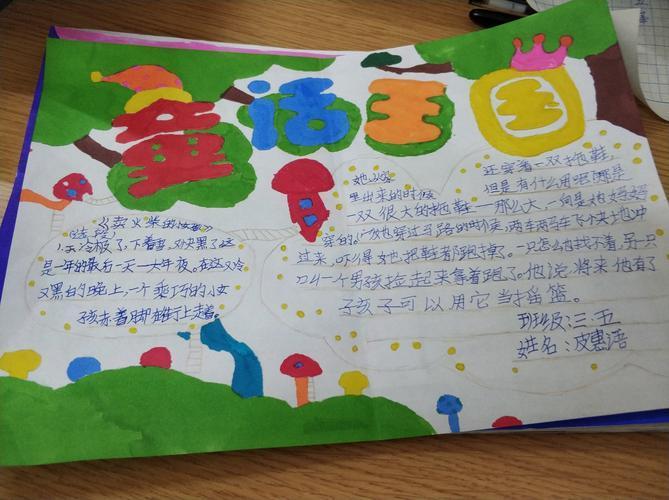 童话王国
《卖火柴的小女孩》
(选段)
天冷极了,下着雪,又快黑了。这
是一年的最后一天—大年夜。在这又冷
又黑的晚上,一个乖巧的小女
孩赤着脚在街上走着。
她从家
里出来的时候
还穿着一双拖鞋,
但是有什么用呢
一双很大的拖鞋——那么大,一向是她妈妈
穿的。她穿过马路的时候,两车马车飞快地冲
过来,吓得她把鞋都跑掉了。一只怎么也找不着,另一只
叫一个男孩捡起来拿着跑了。他说,将来他有了
孩子可以用它当摇篮。
班级:三.五
姓名:皮惠涵